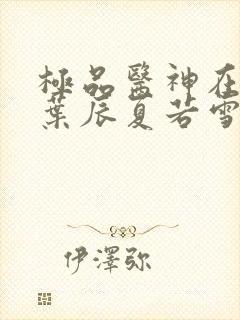 極品醫神在
葉辰夏若雪
伊澤弥